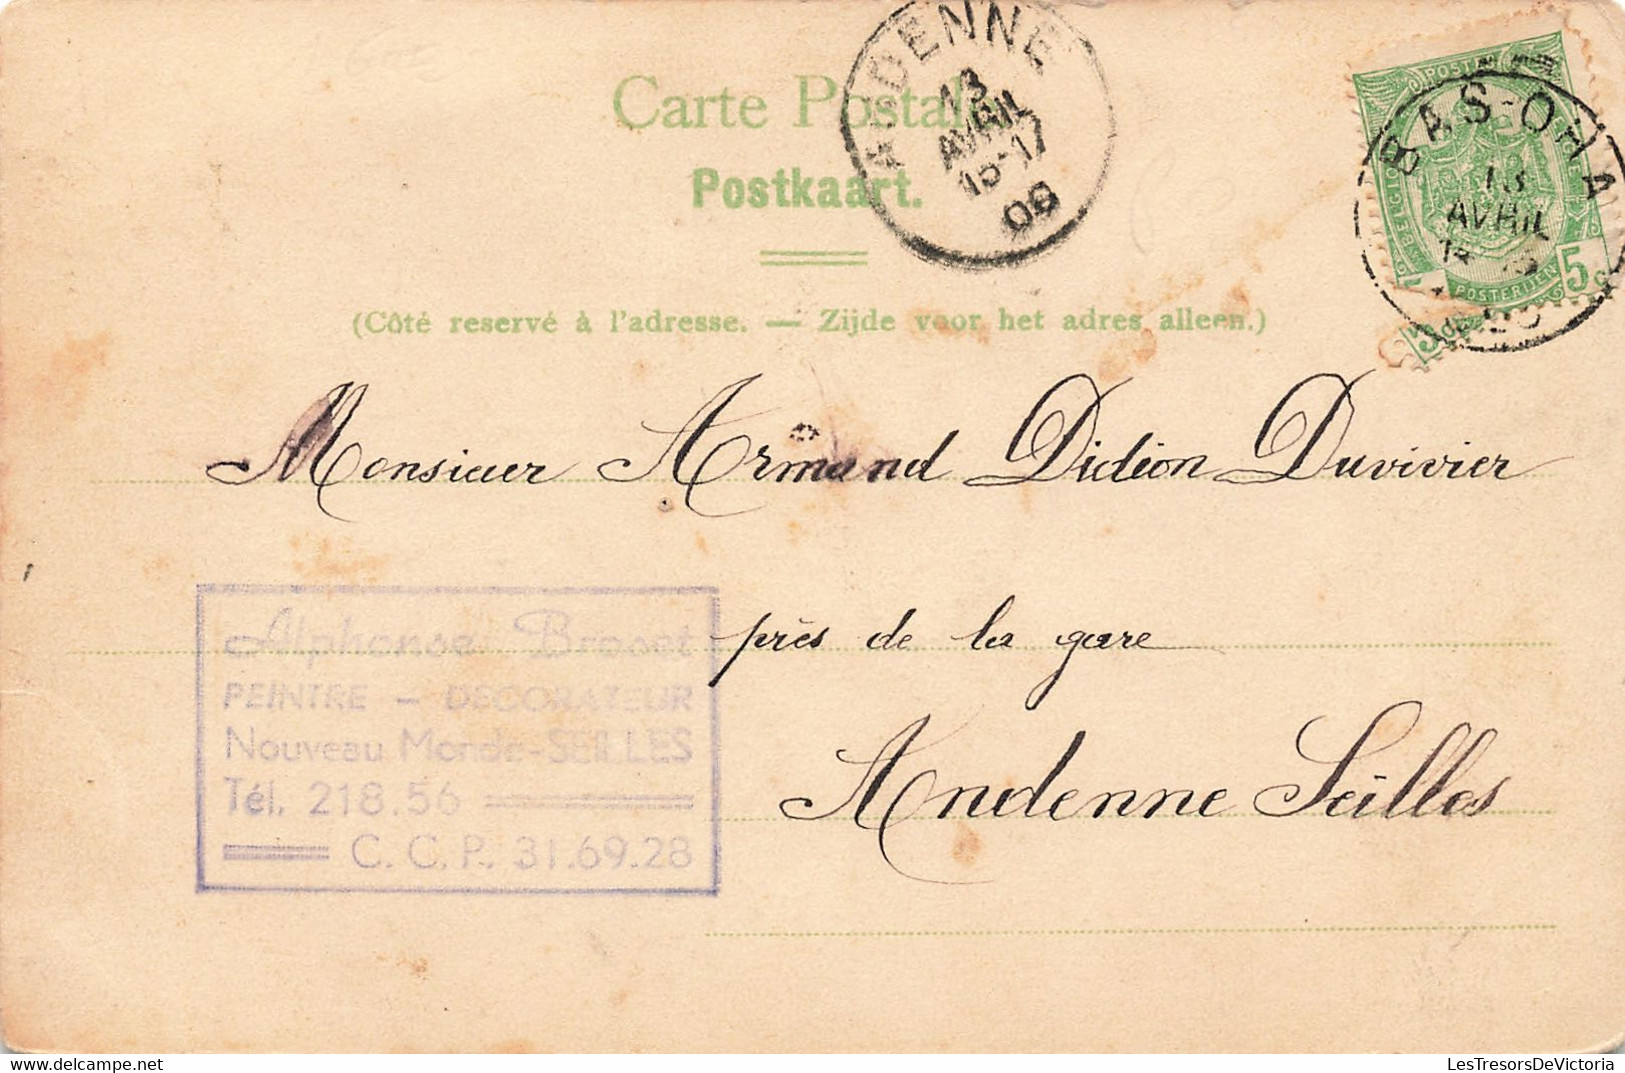 Carte Postale
Postkaart.
(Côté reservé à l'adresse. — Zijde voor het adres alleen.)
ANDENNE
13
AVRIL
16-17
06
BAS-OHA
13
AVRIL
POSTERIJEN
5
Monsieur Armand Didion Duvivier
près de la gare
Andenne Seilles
Alphonse Broset
PEINTRE - DECORATEUR
Nouveau Monde-SEILLES
Tél. 218.56
C. C. P. 31.69.28
© delcampe.net
LesTresorsDeVictoria